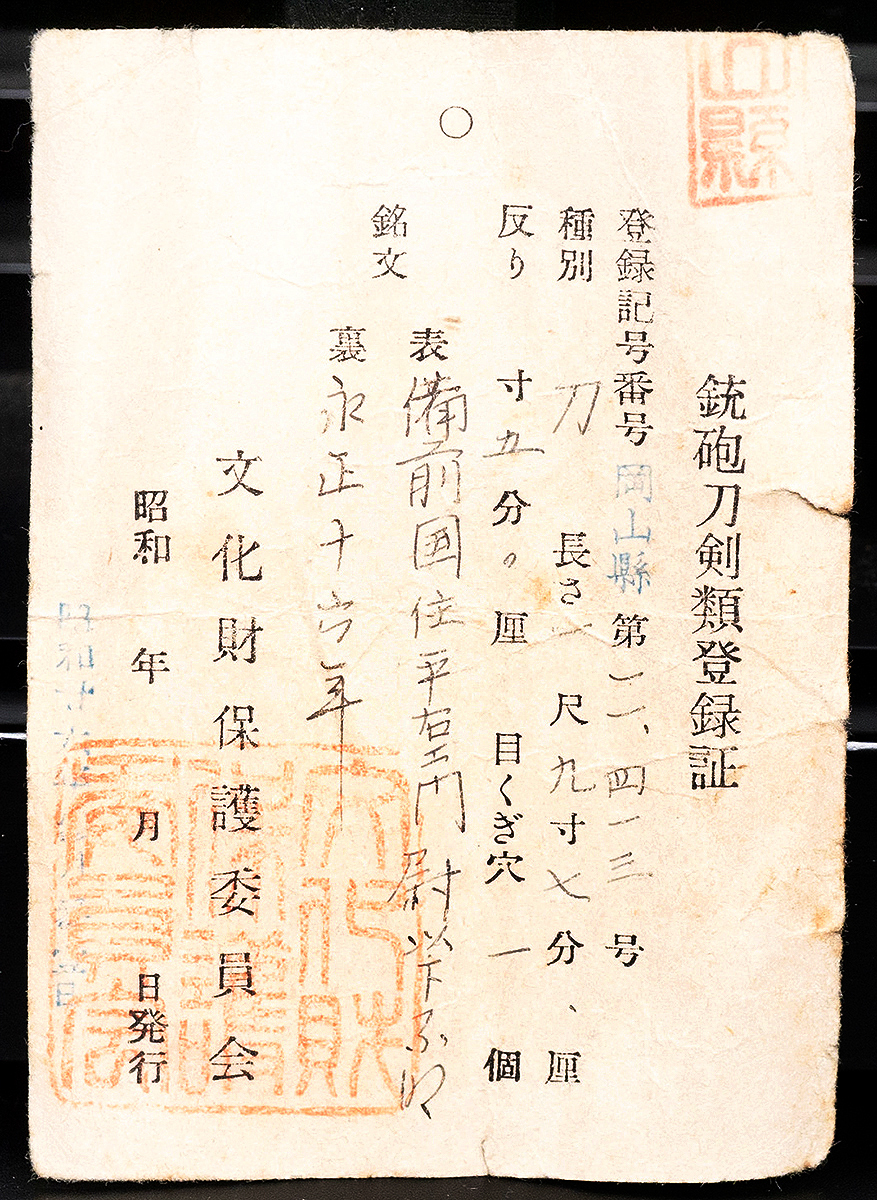 山縣
銃砲刀剣類登録証
登録記号番号 岡山縣 第一一、四一三号
種別 刀 長さ一尺九寸七分、厘
反り 寸五分〇厘 目くぎ穴 一 個
銘文
表 備前国住平右エ門尉以下不明
裏 永正十六年
文化財保護委員会
昭和 年 月 日発行
昭和廿六年